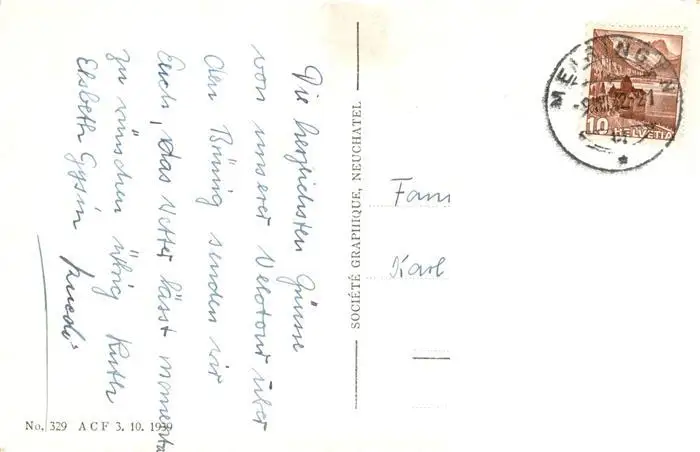 Die herzlichsten Grüsse
von unserer Velotour über
den Brünig senden wir
Euch, das Wetter lässt momenta
zu wünschen übrig Ruth
Elsbeth Gysin
SOCIÉTÉ GRAPHIQUE, NEUCHATEL
Fam
Karl
MEIRINGEN
10 HELVETIA
No. 329 ACF 3. 10. 1939